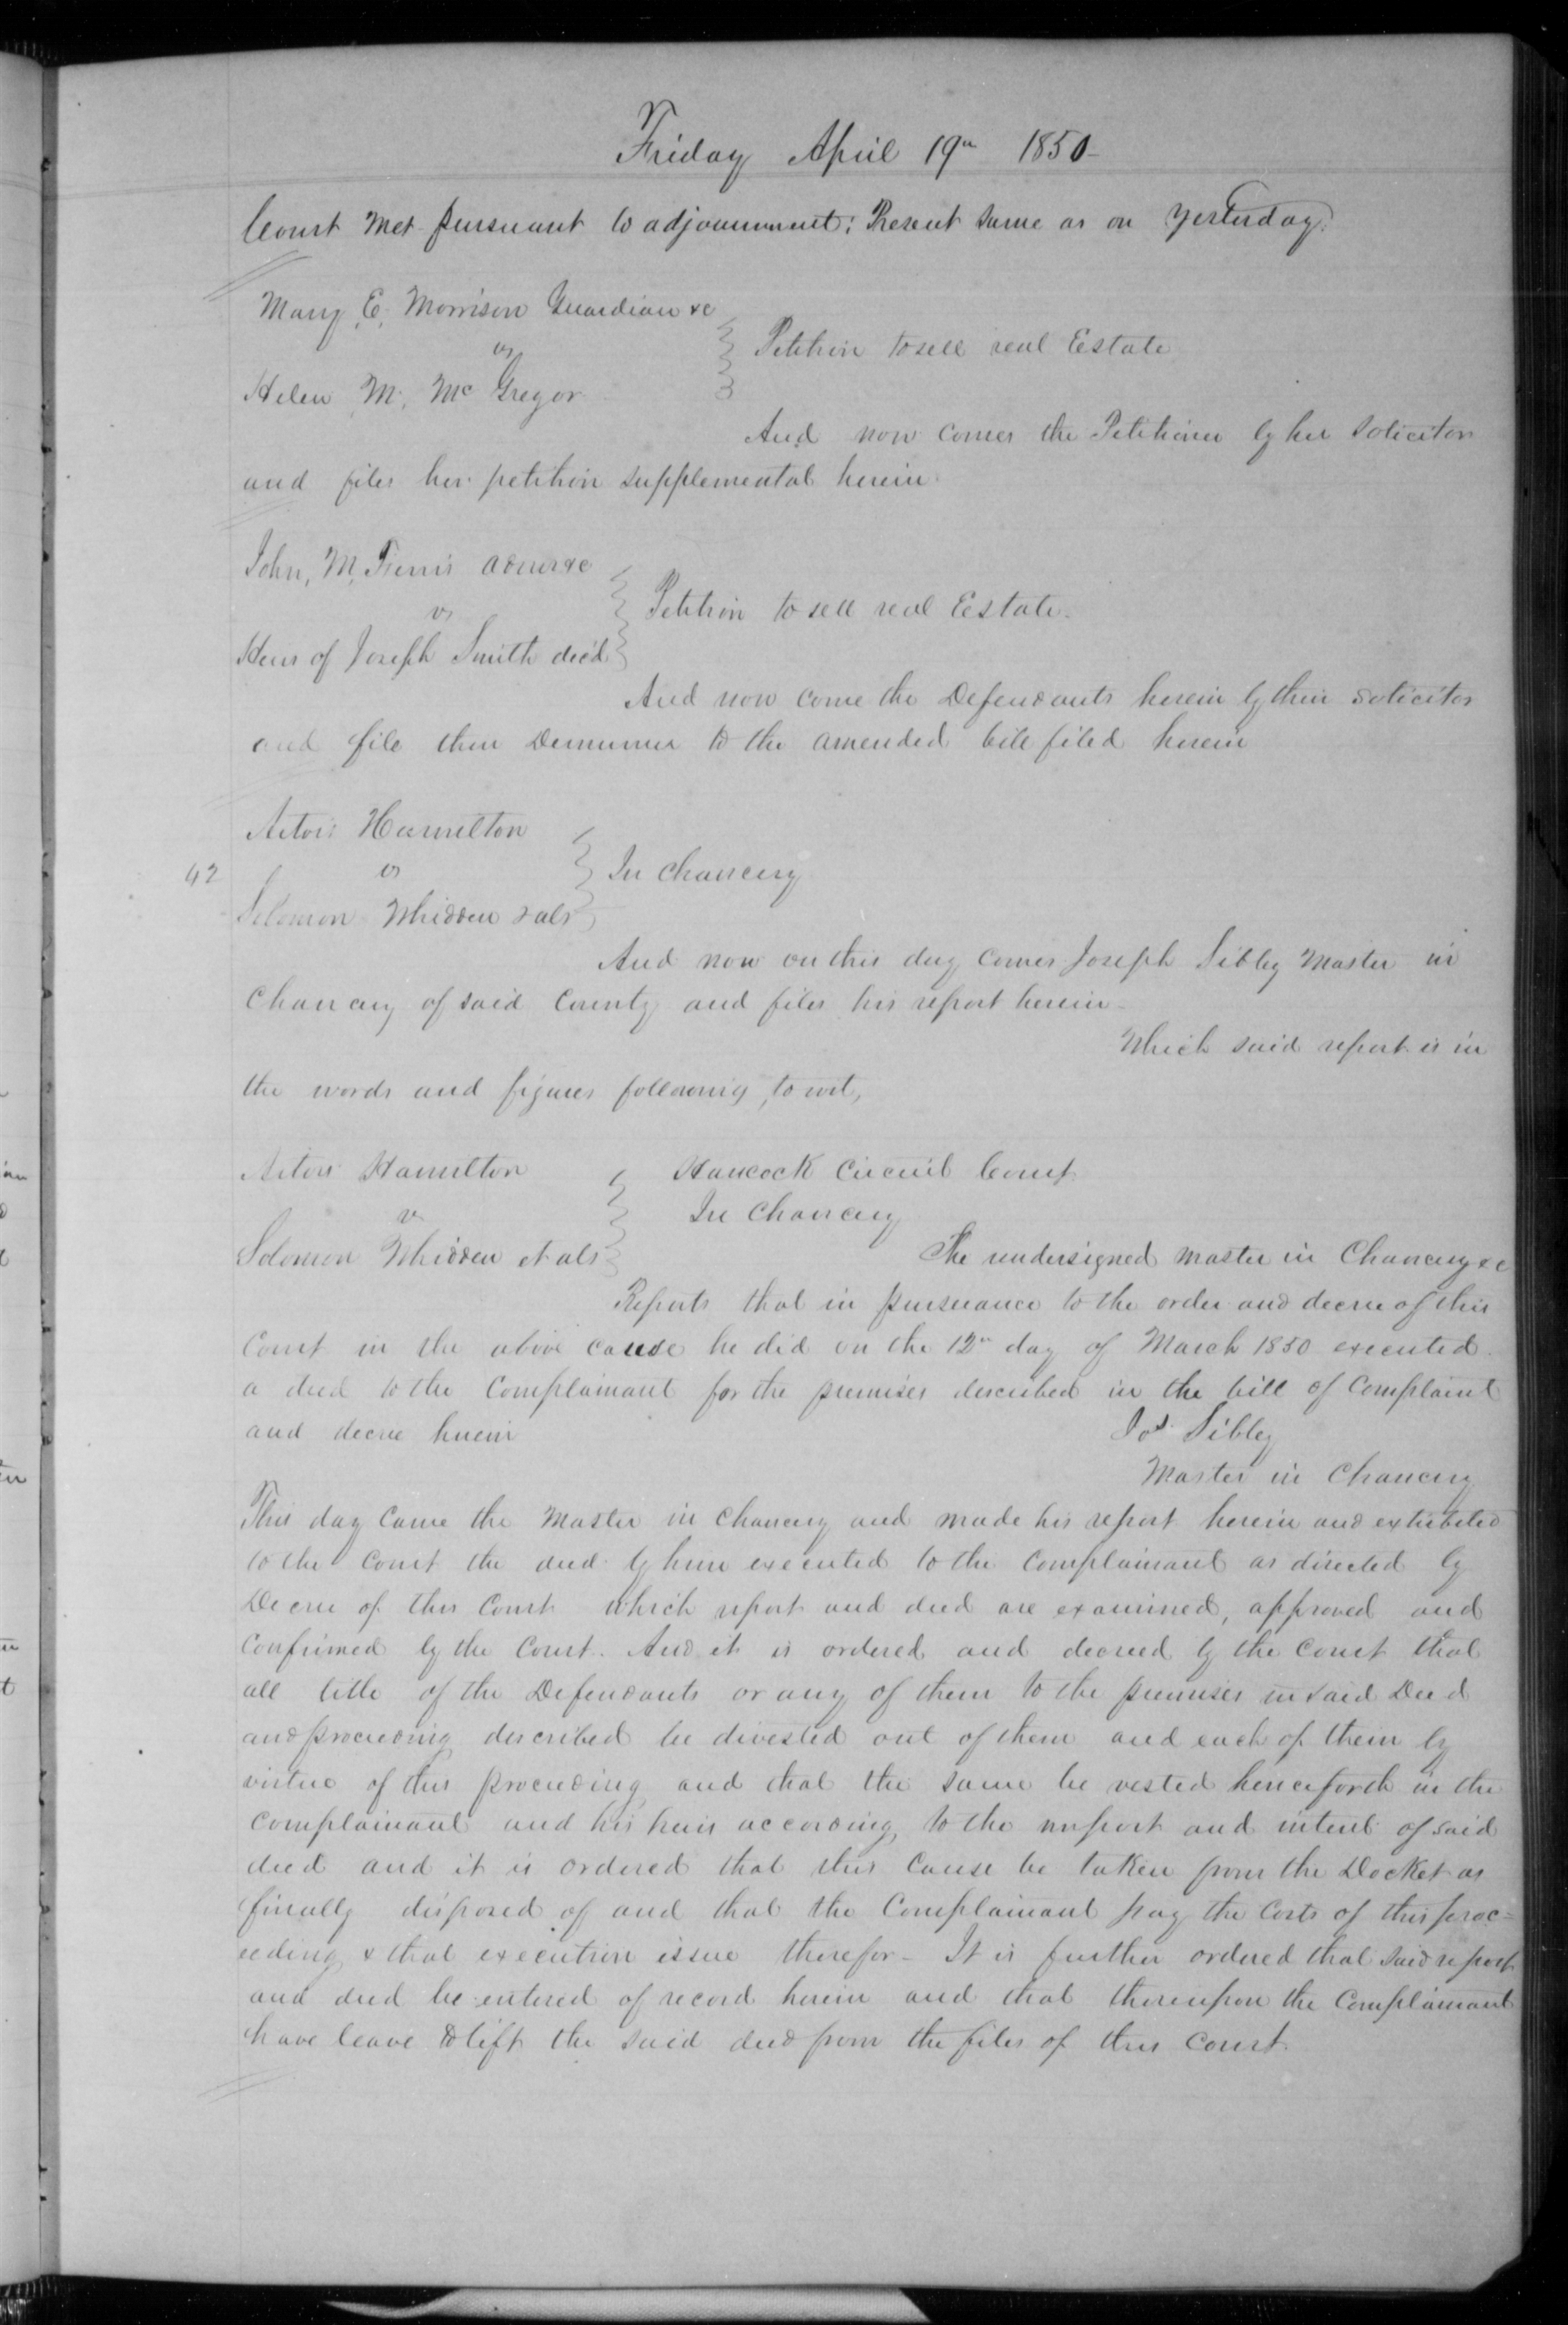 Friday April 19th 1850-
Court Met pursuant to adjournment; Present same as on yesterday.
Mary, E, Morrison Guardian &c
vs
Petition to sell real Estate
Helen, M, McGregor
And now comes the Petitioner by her solicitor
and files her petition supplemental herein.
John, M, Ferris Adm &c
vs
Petition to sell real Estate.
Heirs of Joseph Smith dec'd
And now come the Defendants herein by their solicitor
and file their Demurrer to the amended bill filed herein
Artois Hamilton
42
vs
In Chancery
Solomon Whidden & als
And now on this day comes Joseph Sibley Master in
Chancery of said County and files his report herein-
Which said report is in
the words and figures following, to wit,
Artois Hamilton
Hancock Circuit Court
vs
In Chancery
Solomon Whidden et als
The undersigned Master in Chancery &c
Reports that in pursuance to the order and decree of this
Court in the above cause he did on the 12th day of March 1850 executed
a deed to the Complainant for the premises described in the bill of Complaint
and decree herein
Jos. Sibley
Master in Chancery
This day came the Master in Chancery and made his report herein and exhibited
to the Court the deed by him executed to the Complainant as directed by
Decree of this Court which report and deed are examined, approved and
Confirmed by the Court. And it is ordered and decreed by the Court that
all title of the Defendants or any of them to the premises in said Deed
and proceeding described be divested out of them and each of them by
virtue of this proceeding and that the same be vested henceforth in the
Complainant and his heirs according to the import and intent of said
deed and it is ordered that this cause be taken from the Docket as
finally disposed of and that the Complainant pay the Costs of this proc=
eeding & that execution issue therefor- It is further ordered that said report
and deed be entered of record herein and that thereupon the Complainant
have leave to lift the said deed from the files of this Court.